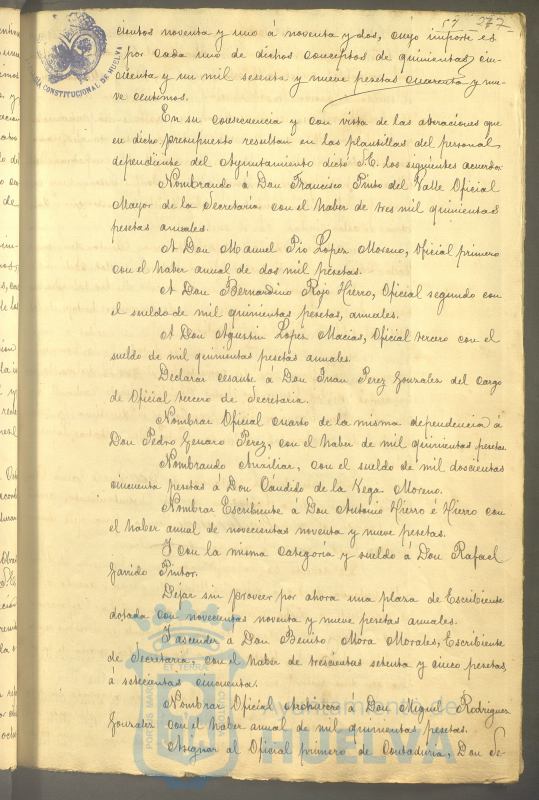 57 277
cientos noventa y uno á noventa y dos, cuyo importe es
por cada uno de dichos conceptos de quinientas cin-
cuenta y un mil sesenta y nueve pesetas cuarenta y nue-
ve centimos.
En su consecuencia y con vista de las alteraciones que
en dicho presupuesto resultan en las plantillas del personal
dependiente del Ayuntamiento dictó S.E. los siguientes acuerdos:
Nombrando á Don Francisco Pinto del Valle Oficial
Mayor de la Secretaría con el haber de tres mil quinientas
pesetas anuales.
A Don Manuel Pio Lopez Moreno, Oficial primero
con el haber anual de dos mil pesetas.
A Don Bernardino Rojo Hierro, Oficial segundo con
el sueldo de mil quinientas pesetas, anuales.
A Don Agustin Lopez Macias, Oficial tercero con el
sueldo de mil quinientas pesetas anuales.
Declarar cesante á Don Juan Perez Gonzalez del cargo
de Oficial tercero de Secretaria.
Nombrar Oficial cuarto de la misma dependencia á
Don Pedro Genaro Perez, con el haber de mil quinientas pesetas.
Nombrando Auxiliar, con el sueldo de mil doscientas
cincuenta pesetas á Don Cándido de la Vega Moreno.
Nombrar Escribiente á Don Antonio Hierro é Hierro con
el haber anual de novecientas noventa y nueve pesetas.
Y con la misma categoría y sueldo á Don Rafael
Garrido Pintor.
Dejar sin proveer por ahora una plaza de Escribiente
dotada con novecientas noventa y nueve pesetas anuales.
Y ascender á Don Benito Mora Morales, Escribiente
de Secretaria, con el haber de trescientas setenta y cinco pesetas,
a setecientas cincuenta.
Nombrar Oficial Archivero á Don Miguel Rodriguez
Gonzalez con el haber anual de mil quinientas pesetas.
Asignar al Oficial primero de Contaduría, Don Se-
CONSTITUCIONAL DE HUELVA
Ayuntamiento de
HUELVA
PORTUS MARIS
ET TERRAE
CUSTODIA